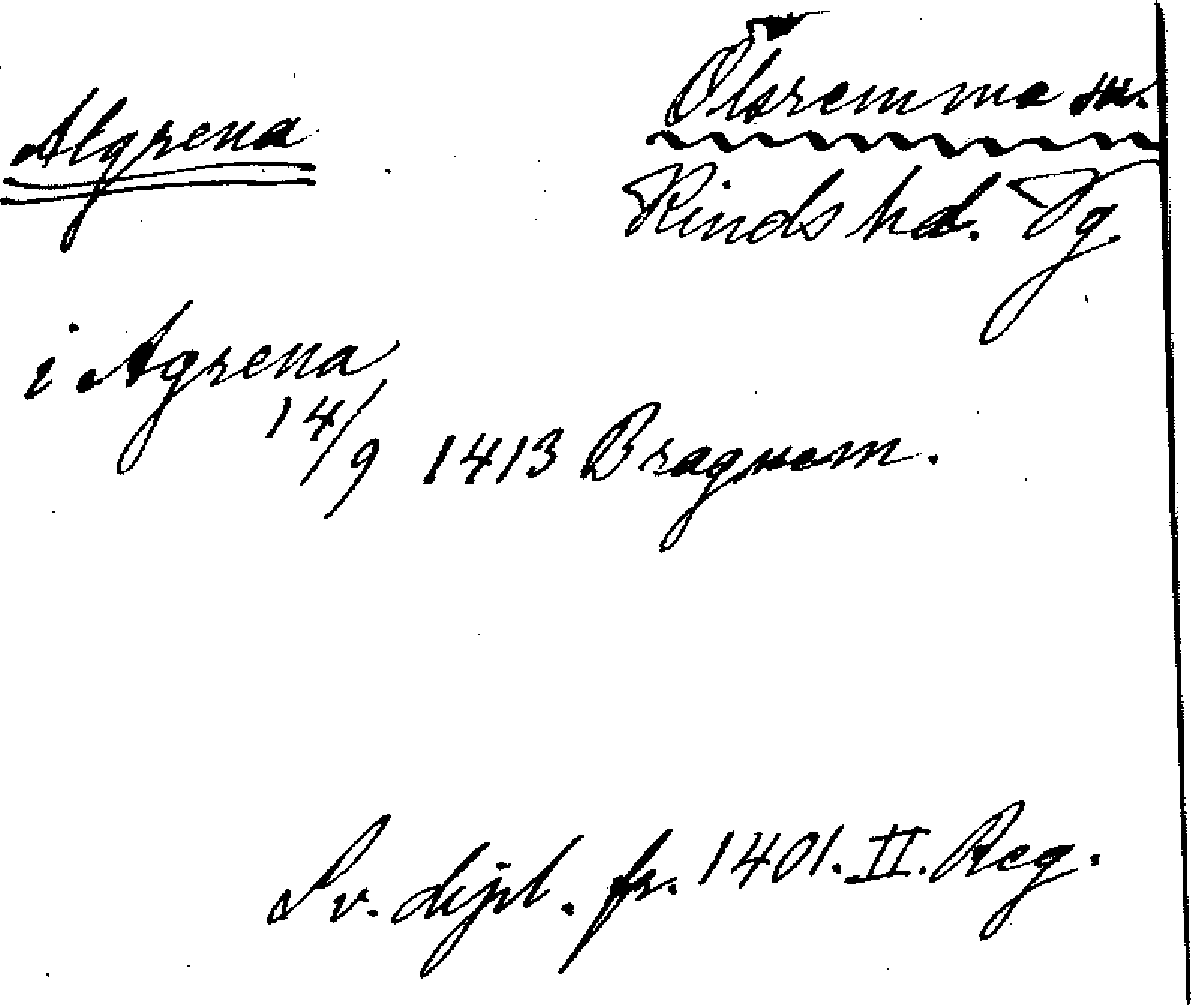 Algrena
Ölsremma sn.
Kinds hd. Vg.
i Agrena
14/9 1413 Bragnem.
Sv. dipl. fr. 1401. II. Reg.